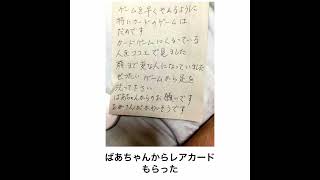 ゲームを早くやめるように
特にカードのゲームは
だめです
カードゲームにくるっている
人をココエで見ました
顔まで変な人になっていました
ぜったい ゲームから足を
洗って下さい
ばあちゃんからのお願いです
お母さんがかわいそうです
ばあちゃんからレアカード
もらった